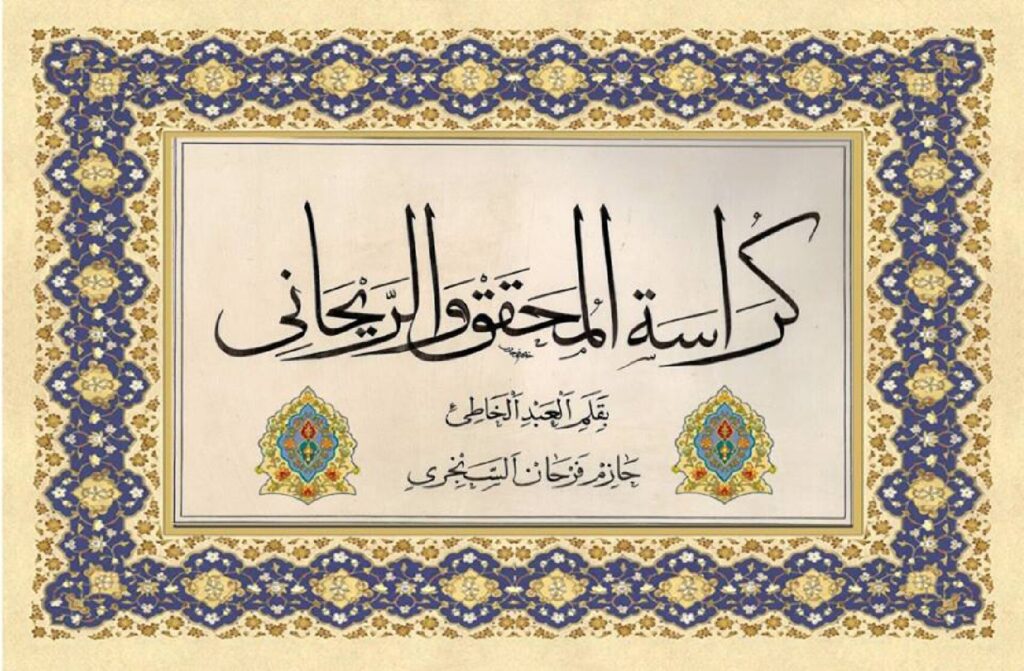 كُرَاسَة المُحَقَقْ وَالرَّيْحَاني
بِقَلَمِ اَلْعَبْدِ اَلْخَاطِئ
حَازِمْ فَرْحَان اَلسِّنْجِري